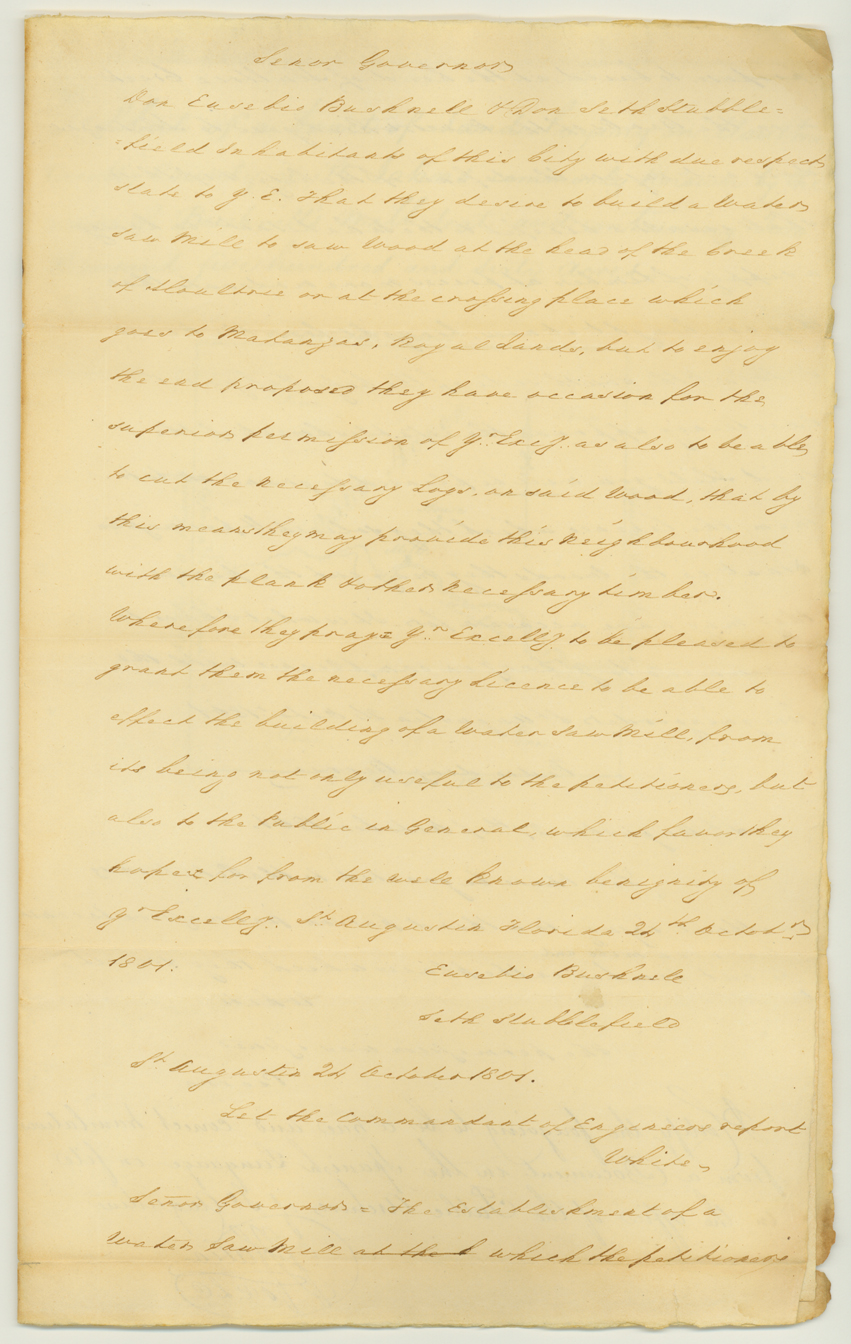 Senor Governor
Don Eusebio Bushnell & Don Seth Stubble=
=field Inhabitants of this City with due respect
state to Y. E. That they desire to build a Water
Saw Mill to saw Wood at the head of the Creek
of Moultrie or at the crossing place which
goes to Matanzas, Royal Lands, but to enjoy
the end proposed they have occasion for the
superior permission of Yr. Excy. as also to be able
to cut the necessary Logs. on said Wood, that by
this means they may provide this Neighbourhood
with the plank & other necessary timber.
Wherefore they pray= Yr. Excelly. to be pleased to
grant them the necessary Licence to be able to
effect the building of a Water Saw Mill, from
its being not only useful to the petitioners, but
also to the Public in General, which favor they
hope= for from the well known benignity of
Yr Excelly. St. Augustin Florida 24th Octobr.
1801.
Eusebio Bushnell
Seth Stubblefield
St. Augustin 24 October 1801.
Let the Commandant of Engineers report
White
Señor Governor = The Establishment of a
Water Saw Mill at the which the petitioners